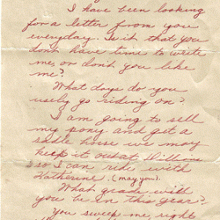 I have been looking
for a letter from you
everyday. Is it that you
dont have time to write
me, or dont you like
me?
What days do you
usely go riding on?
I am going to sell
my pony and get a
sadle horse we may
keep it out at Williams
so I can ride with
Katherine. (maryon).
What grade will
you be in this year?
you sweep me right